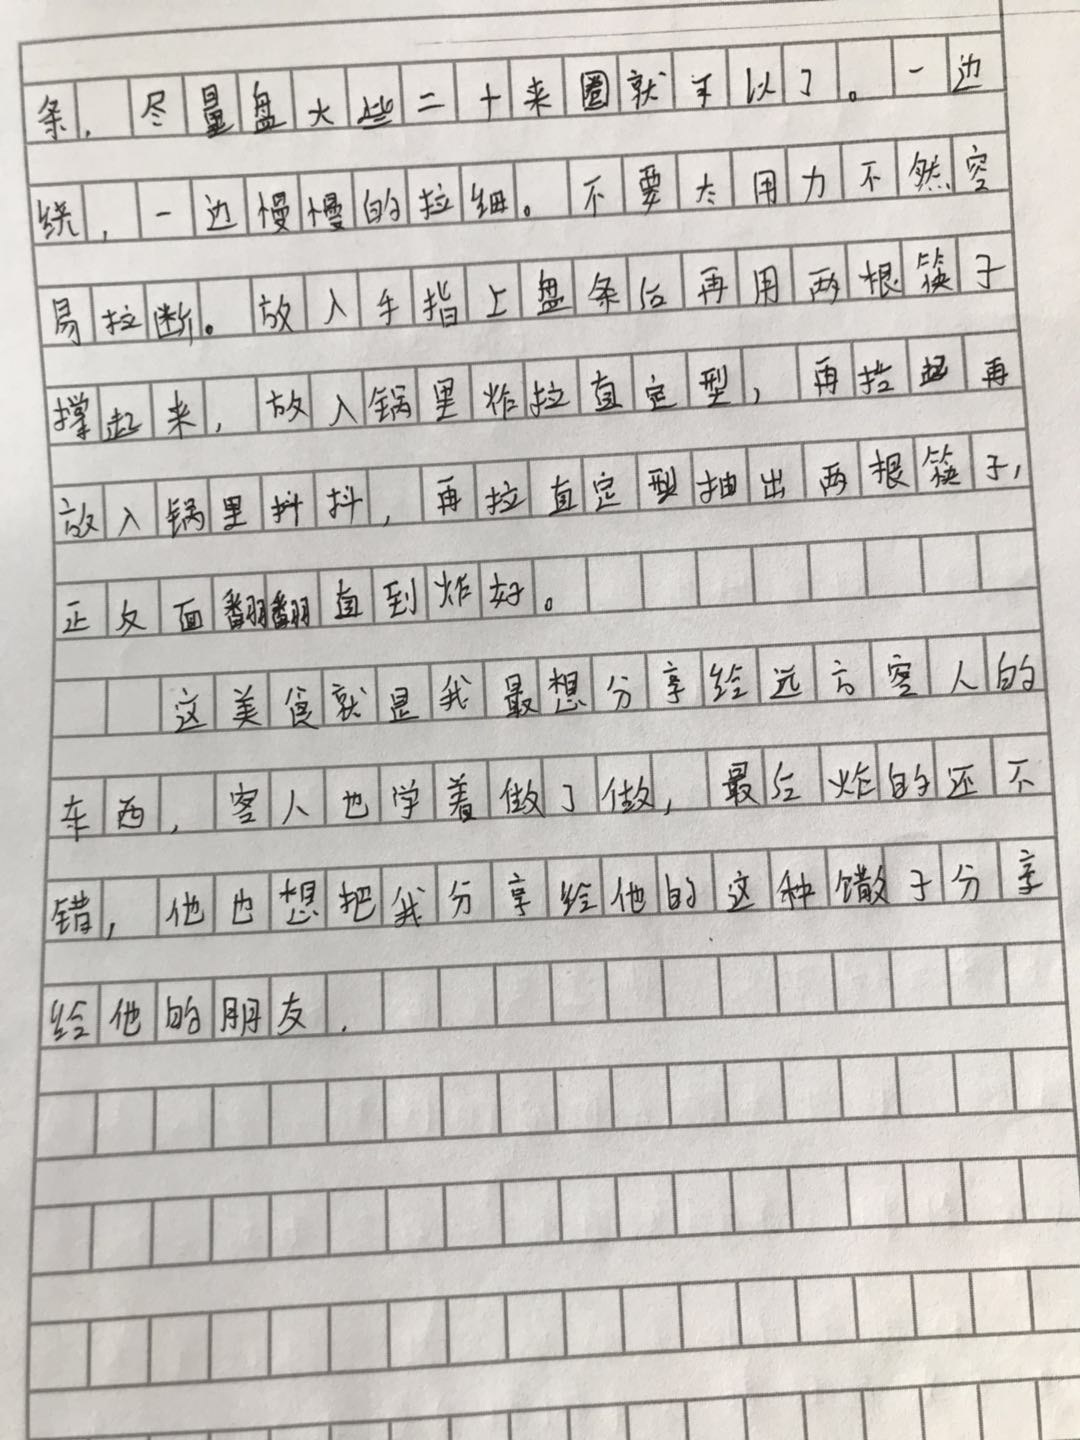 条，尽量盘大些二十来圈就可以了。一边
绕，一边慢慢的拉细。不要太用力不然容
易拉断。放入手指上盘条后再用两根筷子
撑起来，放入锅里炸拉直定型，再拉起再
放入锅里抖抖，再拉直定型抽出两根筷子，
正反面翻翻直到炸好。
这美食就是我最想分享给远方客人的
东西，客人也学着做了做，最后炸的还不
错，他也想把我分享给他的这种馓子分享
给他的朋友.